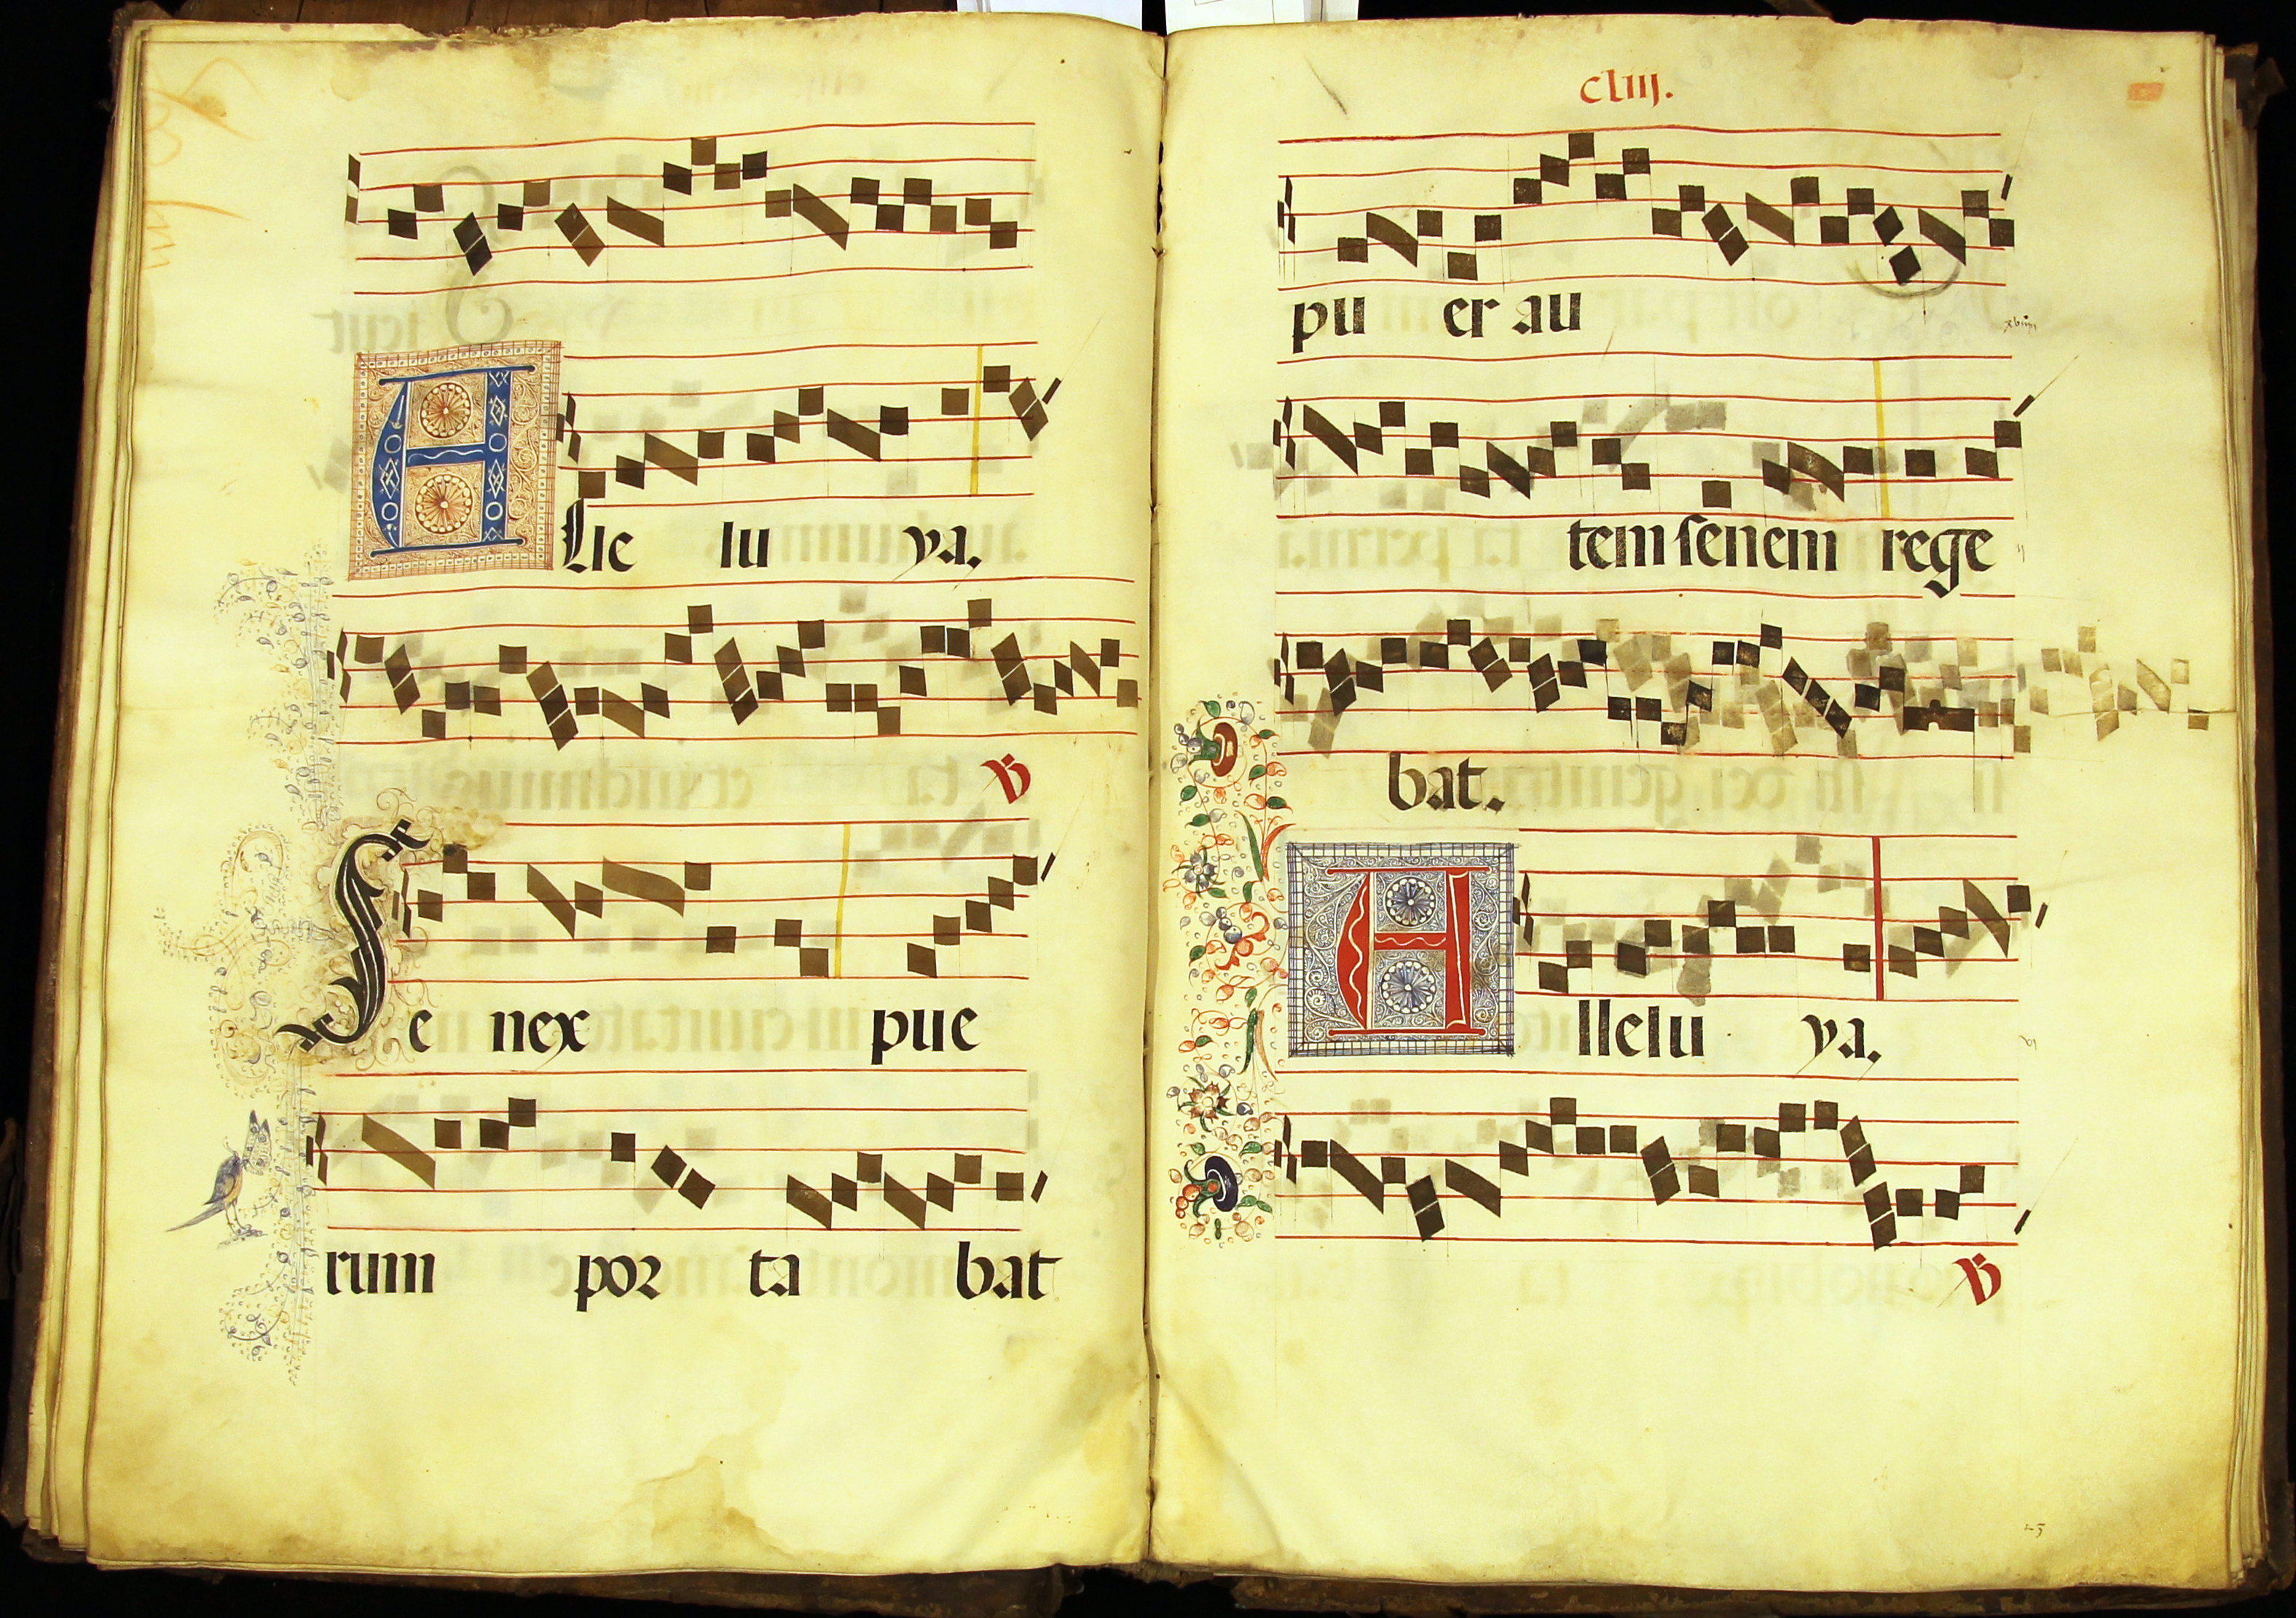 A lle lu ya.
℣
Se nex pue
rum por ta bat
cliii.
pu er au
tem senem rege
bat.
A llelu ya.
℣